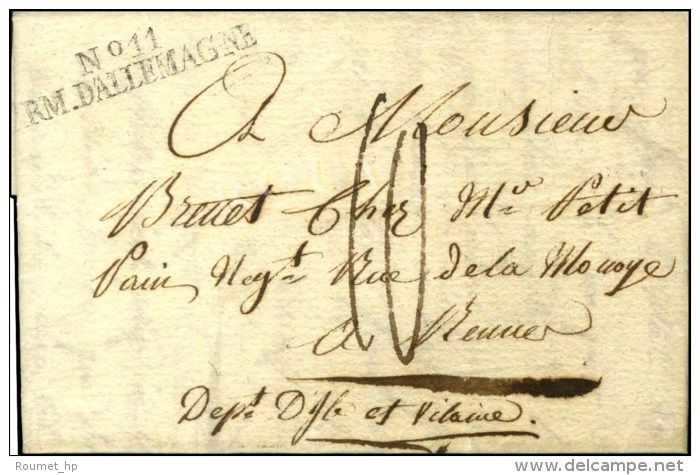 No 11
RM. D'ALLEMAGNE
A Monsieur
Brunet Chez Mr Petit
Pain Negt Rue de la Monoye
a Rennes
10
Dept D'Ille et Vilaine.
Roumet_hp
© delcampe.net